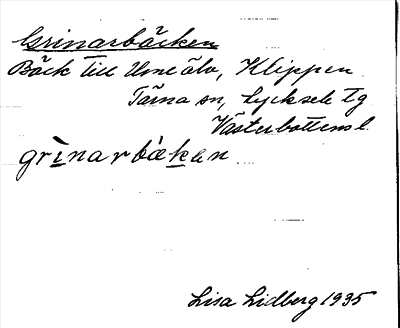 Grinarbäcken
Bäck till Ume älv, Klippen
Tärna sn, Lycksele tg
Västerbottens l.
grìnarbäkan
Lisa Lidberg 1935